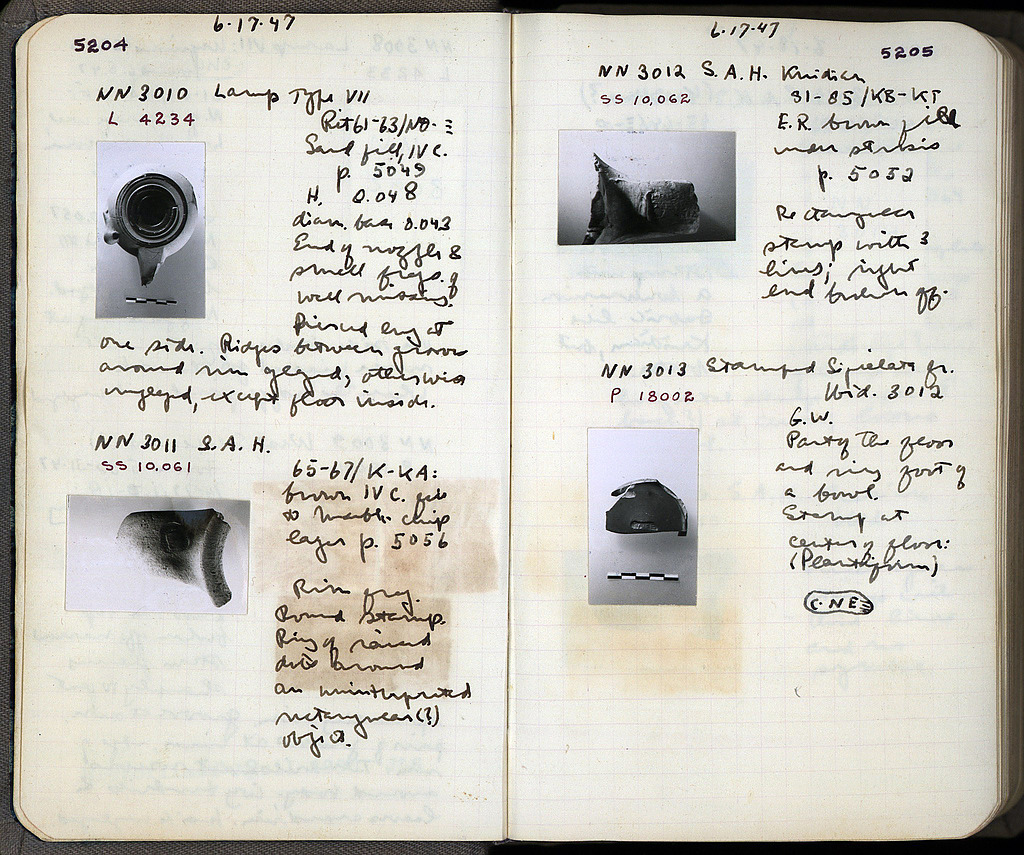 6·17·47
5204
NN 3010 Lamp Type VII
L 4234
Pit 61-63/NO-Ξ
Sand fill, IV C.
p. 5049
H. 0.048
diam. base 0.043
End of nozzle &
small frags. of
wall missing.
Pierced lug at
one side. Ridges between grooves
around rim glazed; otherwise
unglazed, except floor inside.
NN 3011 S.A.H.
SS 10,061
65-67/K-KA:
brown IV C. fill
to marble chip
layer p. 5056
Rim frag.
Round stamp.
Ring of raised
dots around
an uninterpreted
rectangular(?)
object.
6·17·47
5205
NN 3012 S.A.H. Knidian
SS 10,062
81-85/KB-KΓ
E.R. brown fill
over stosis
p. 5052
Rectangular
stamp with 3
lines; right
end broken off.
NN 3013 Stamped Sigillata fr.
P 18002
Ibid. 3012
G.W.
Part of the floor
and ring foot of
a bowl.
Stamp at
center of floor:
(Plantiform)
C·NE